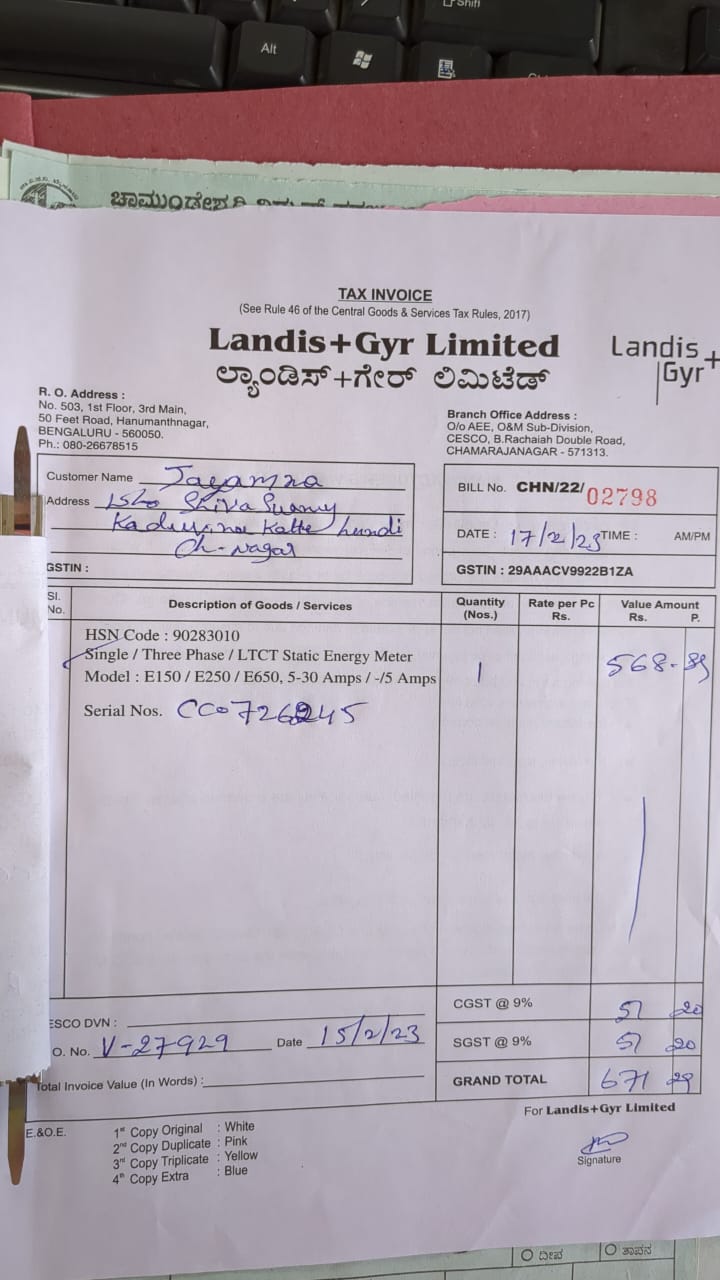 Shift
Alt
TAX INVOICE
(See Rule 46 of the Central Goods & Services Tax Rules, 2017)
Landis+Gyr Limited
ಲ್ಯಾಂಡಿಸ್+ಗೇರ್ ಲಿಮಿಟೆಡ್
Landis+
Gyr
R. O. Address :
No. 503, 1st Floor, 3rd Main,
50 Feet Road, Hanumanthnagar,
BENGALURU - 560050.
Ph.: 080-26678515
Branch Office Address :
O/o AEE, O&M Sub-Division,
CESCO, B.Rachaiah Double Road,
CHAMARAJANAGAR - 571313.
Customer Name Jayamra
Address Shiva Swamy
Katte hundi
Ch-nagar
GSTIN :
BILL No. CHN/22/ 02798
DATE : 17/2/23 TIME : AM/PM
GSTIN : 29AAACV9922B1ZA
Sl. No. Description of Goods / Services Quantity (Nos.) Rate per Pc Rs. Value Amount Rs. P.
HSN Code : 90283010
Single / Three Phase / LTCT Static Energy Meter
Model : E150 / E250 / E650, 5-30 Amps / -/5 Amps 1 568-89
Serial Nos. CC0726245
CGST @ 9% 51 20
ESCO DVN :
SGST @ 9% 51 20
O. No. V-27929 Date 15/2/23
GRAND TOTAL 671 29
Total Invoice Value (In Words) :
For Landis+Gyr Limited
E.&O.E.
1st Copy Original : White
2nd Copy Duplicate : Pink
3rd Copy Triplicate : Yellow
4th Copy Extra : Blue
Signature
ದೀಪ
ತಾಪನ